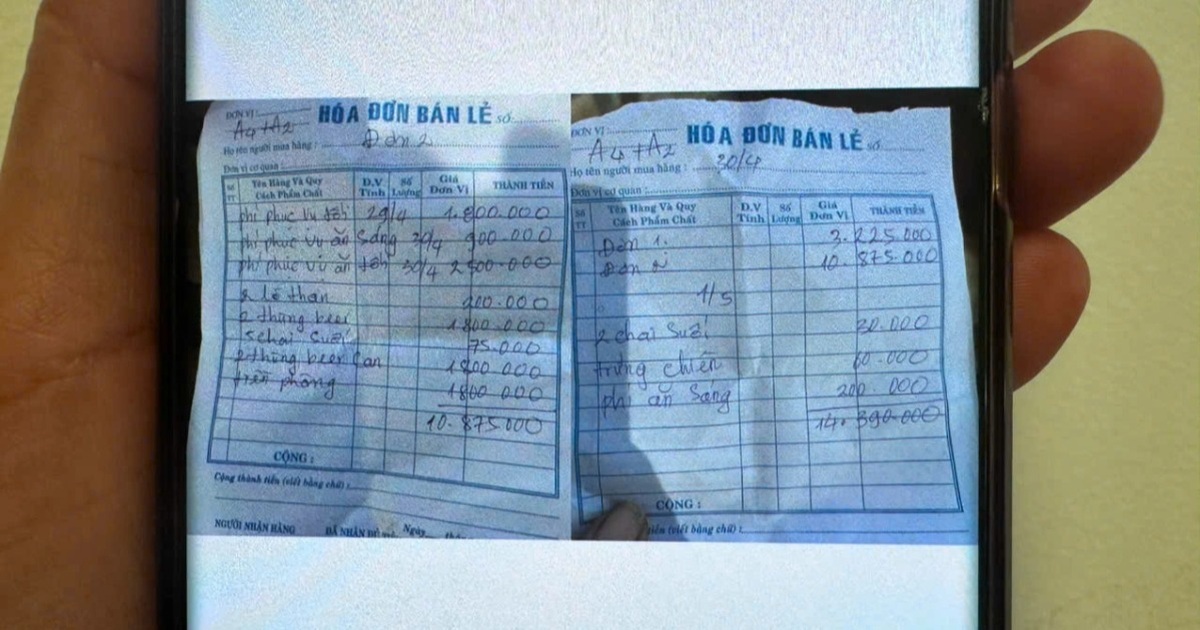 ĐƠN VỊ : HÓA ĐƠN BÁN LẺ số
A4+A2
Họ tên người mua hàng : Đơn 2
Đơn vị cơ quan :
Số TT Tên Hàng Và Quy Cách Phẩm Chất Đ.V Tính Số Lượng Giá Đơn Vị THÀNH TIỀN
phí phục vụ tối 29/4 1.800.000
phí phục vụ ăn sáng 30/4 900.000
phí phục vụ ăn tối 30/4 2.500.000
200.000
2 thùng beer 1800.000
5 chai suối 75.000
2 thùng beer Can 1800.000
tiền phòng 1800 000
10.875.000
CỘNG :
Cộng thành tiền (viết bằng chữ) :
NGƯỜI NHẬN HÀNG ĐÃ NHẬN ĐỦ Ngày
ĐƠN VỊ : HÓA ĐƠN BÁN LẺ số
A4 + A2
Họ tên người mua hàng : 30/4
Đơn vị cơ quan :
Số TT Tên Hàng Và Quy Cách Phẩm Chất Đ.V Tính Số Lượng Giá Đơn Vị THÀNH TIỀN
Đơn 1. 3.225.000
Đơn 2 10.875.000
1/5
2 chai suối 30.000
trứng chiên 60.000
phí ăn sáng 200.000
14.390.000
CỘNG :
tiền (viết bằng chữ) :